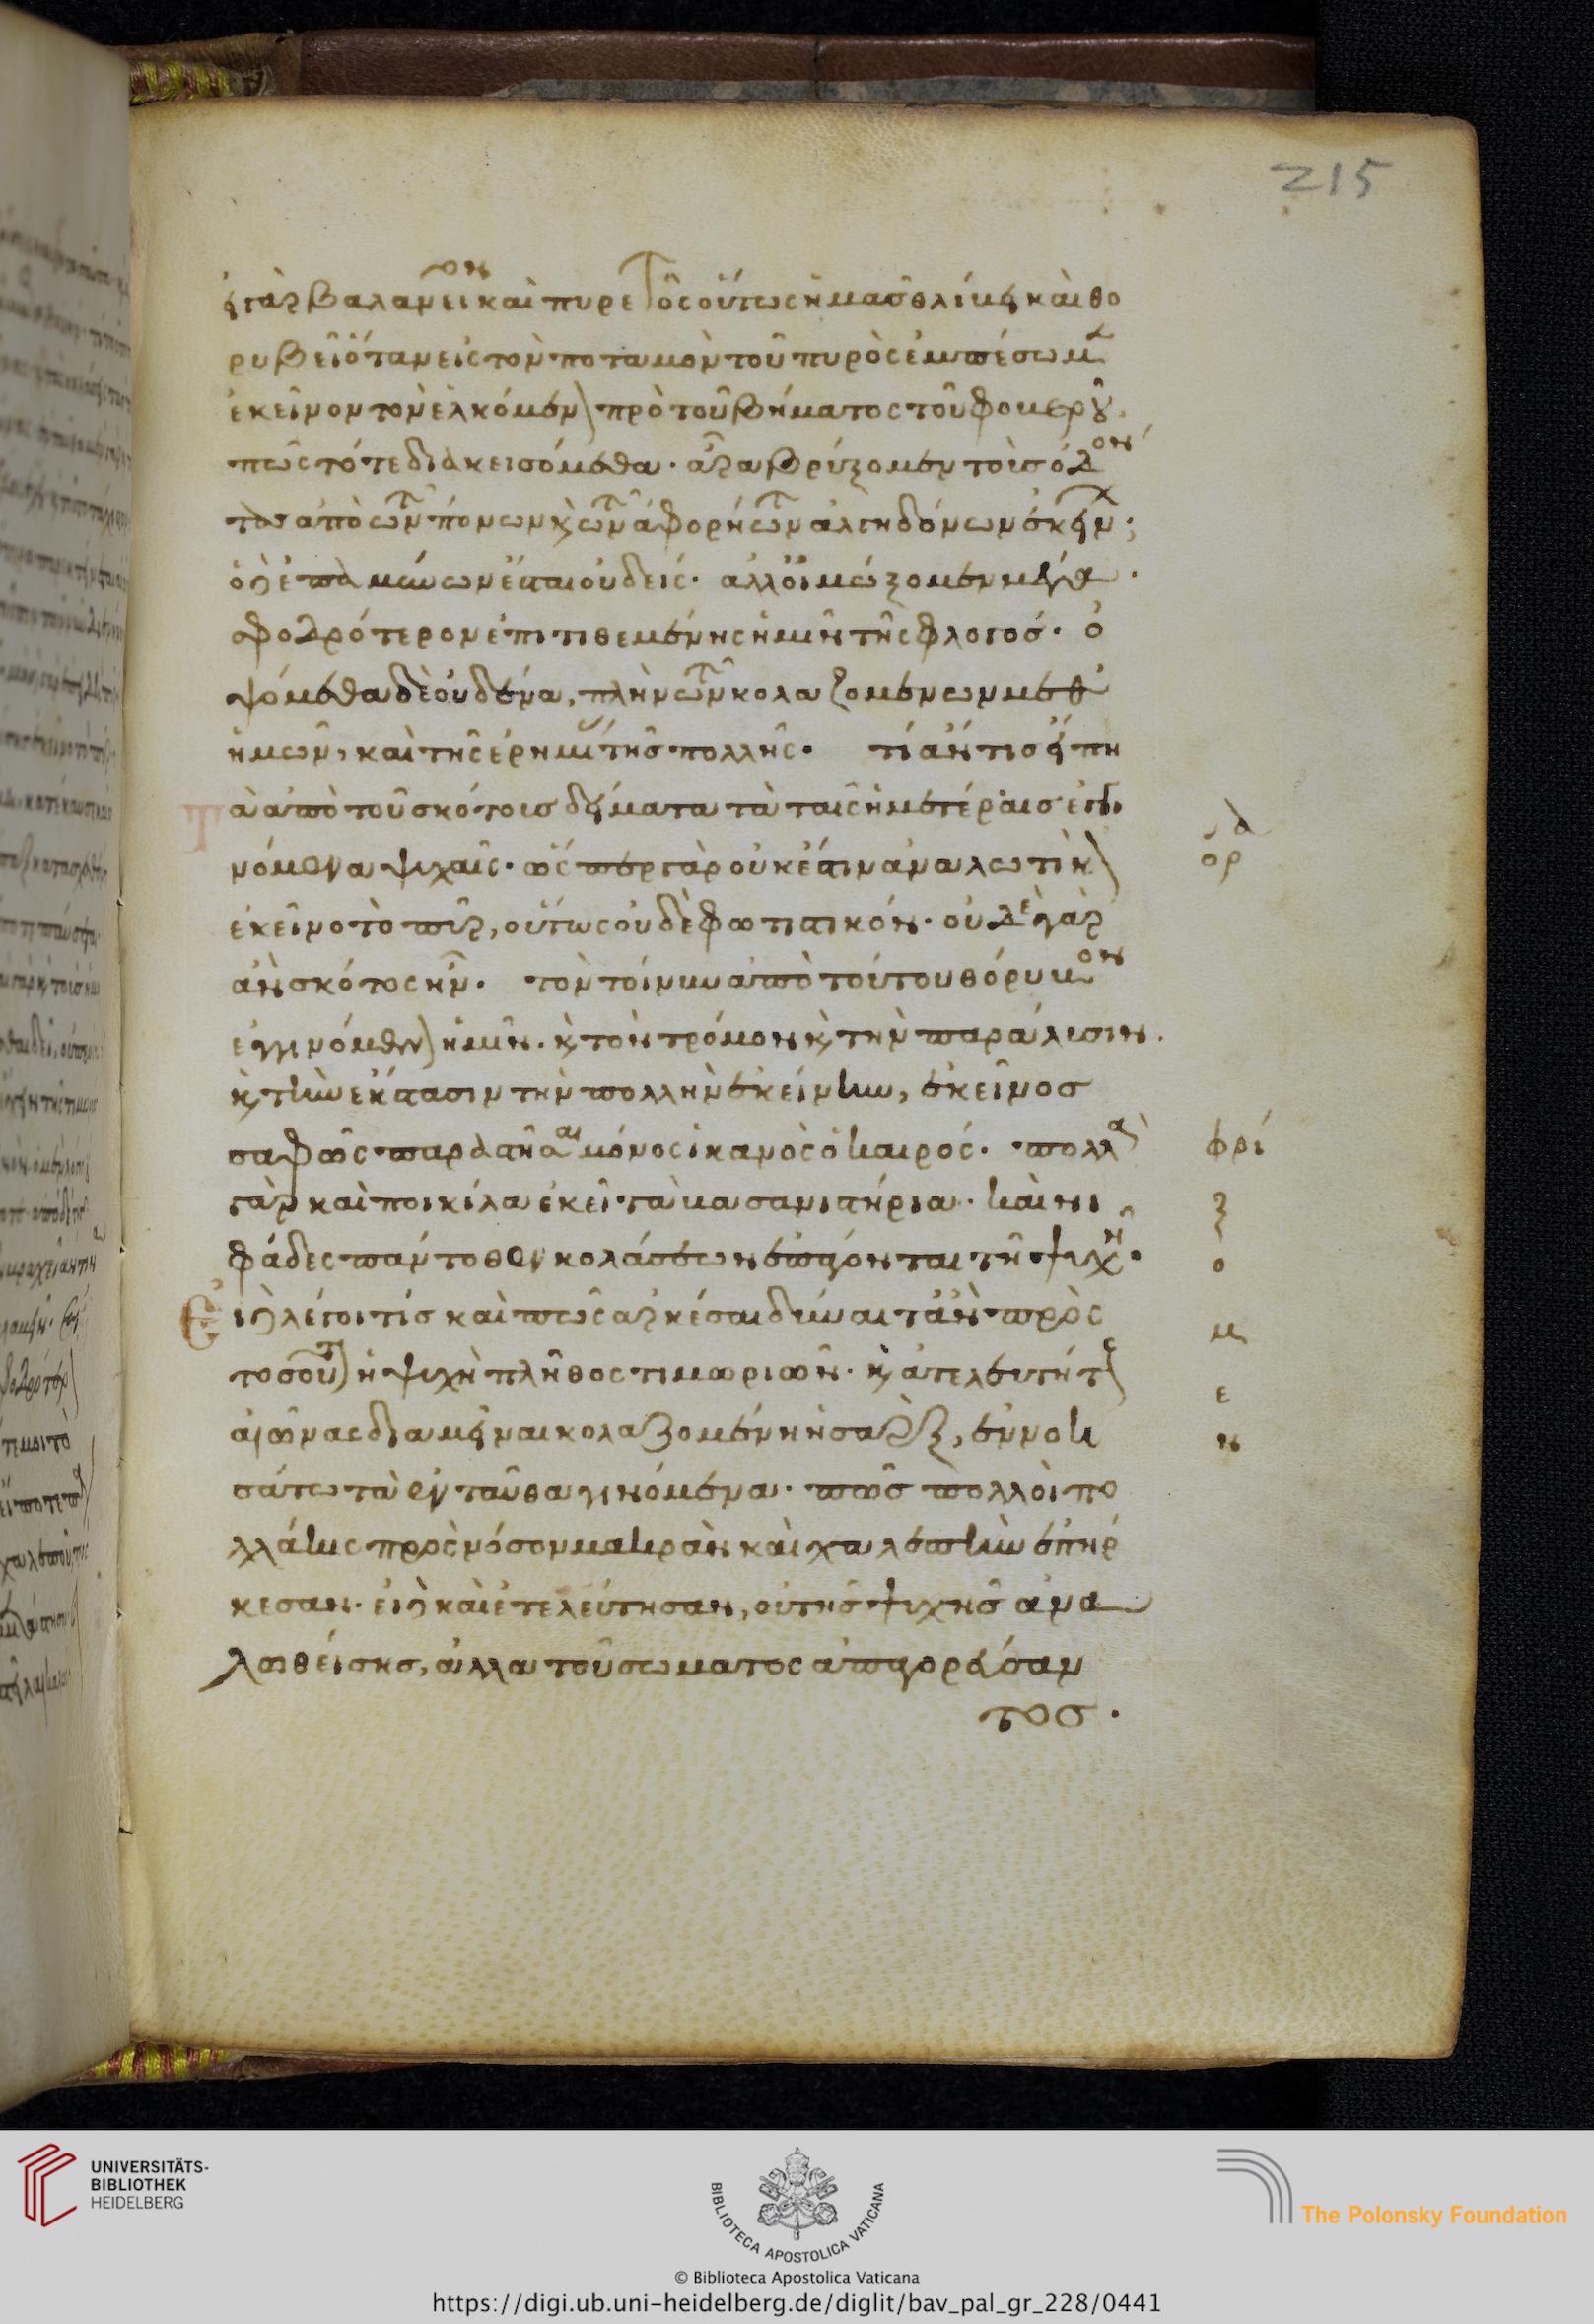 215
εἰ γὰρ βαλανεῖον καὶ πυρετὸς οὕτως ἡμᾶς θλίβει καὶ θο
ρυβεῖ ὅταν εἰς τὸν ποταμὸν τοῦ πυρὸς ἐμπέσωμεν
ἐκεῖνον τὸν ἑλκόμενον πρὸ τοῦ βήματος τοῦ φοβεροῦ.
πῶς τότε διακεισόμεθα. ἆρα βρύξομεν τοὺς ὀδόν
τας ἀπὸ τῶν πόνων καὶ τῶν ἀφορήτων ἀλγηδόνων ἐκείνων;
ὁ δὲ ἐπαμύνων ἔσται οὐδείς. ἀλλ' οἰμώξομεν μέγα.
σφοδρότερον ἐπιτιθεμένης ἡμῖν τῆς φλογός. ὀ
ψόμεθα δὲ οὐδένα, πλὴν τῶν κολαζομένων μεθ'
ἡμῶν, καὶ τῆς ἐρημίας τῆς πολλῆς. τί ἄν τις εἴπη
τὰ ἀπὸ τοῦ σκότους δείματα τὰ ταῖς ἡμετέραις ἐγγι
νόμενα ψυχαῖς. ὥσπερ γὰρ οὐκ ἔστιν ἀναλωτικὸν
ἐκεῖνο τὸ πῦρ, οὕτως οὐδὲ φωτιστικόν. οὐδὲ γὰρ
ἂν σκότος ἦν. τὸν τοίνυν ἀπὸ τούτου θόρυβον
ἐγγινόμενον ἡμῖν. καὶ τὸν τρόμον καὶ τὴν παράλυσιν.
καὶ τὴν ἔκστασιν τὴν πολλὴν ἐκείνην, ἐκεῖνος
σαφῶς παραστῆσαι μόνος ἱκανὸς ὁ καιρός. πολλὰ
γὰρ καὶ ποικίλα ἐκεῖ τὰ βασανιστήρια. καὶ νι
φάδες πάντοθεν κολάσεων ἐπάγονται τῇ ψυχῇ.
Εἰ δὲ λέγοι τίς καὶ πῶς ἀρκέσαι δύναιτ' ἂν πρὸς
τοσοῦτον ἡ ψυχὴ πλῆθος τιμωριῶν. καὶ ἀτελευτήτους
αἰῶνας διαμεῖναι κολαζομένη ἡ σαρξ, ἐννοη
σάτω τὰ ἐνταῦθα γινόμενα. πῶς πολλοὶ πο
λλάκις πρὸς νόσον μακρὰν καὶ χαλεπὴν ἐπήρ
κεσαν. εἰ δὲ καὶ ἐτελεύτησαν, οὐ τῆς ψυχῆς ἀνα
λωθείσης, ἀλλα τοῦ σωματος ἀπαγορεύσαν
τος.
φρί
ξ
ο
μ
ε
ν
UNIVERSITÄTS-
BIBLIOTHEK
HEIDELBERG
BIBLIOTECA APOSTOLICA VATICANA
The Polonsky Foundation
© Biblioteca Apostolica Vaticana
https://digi.ub.uni-heidelberg.de/diglit/bav_pal_gr_228/0441